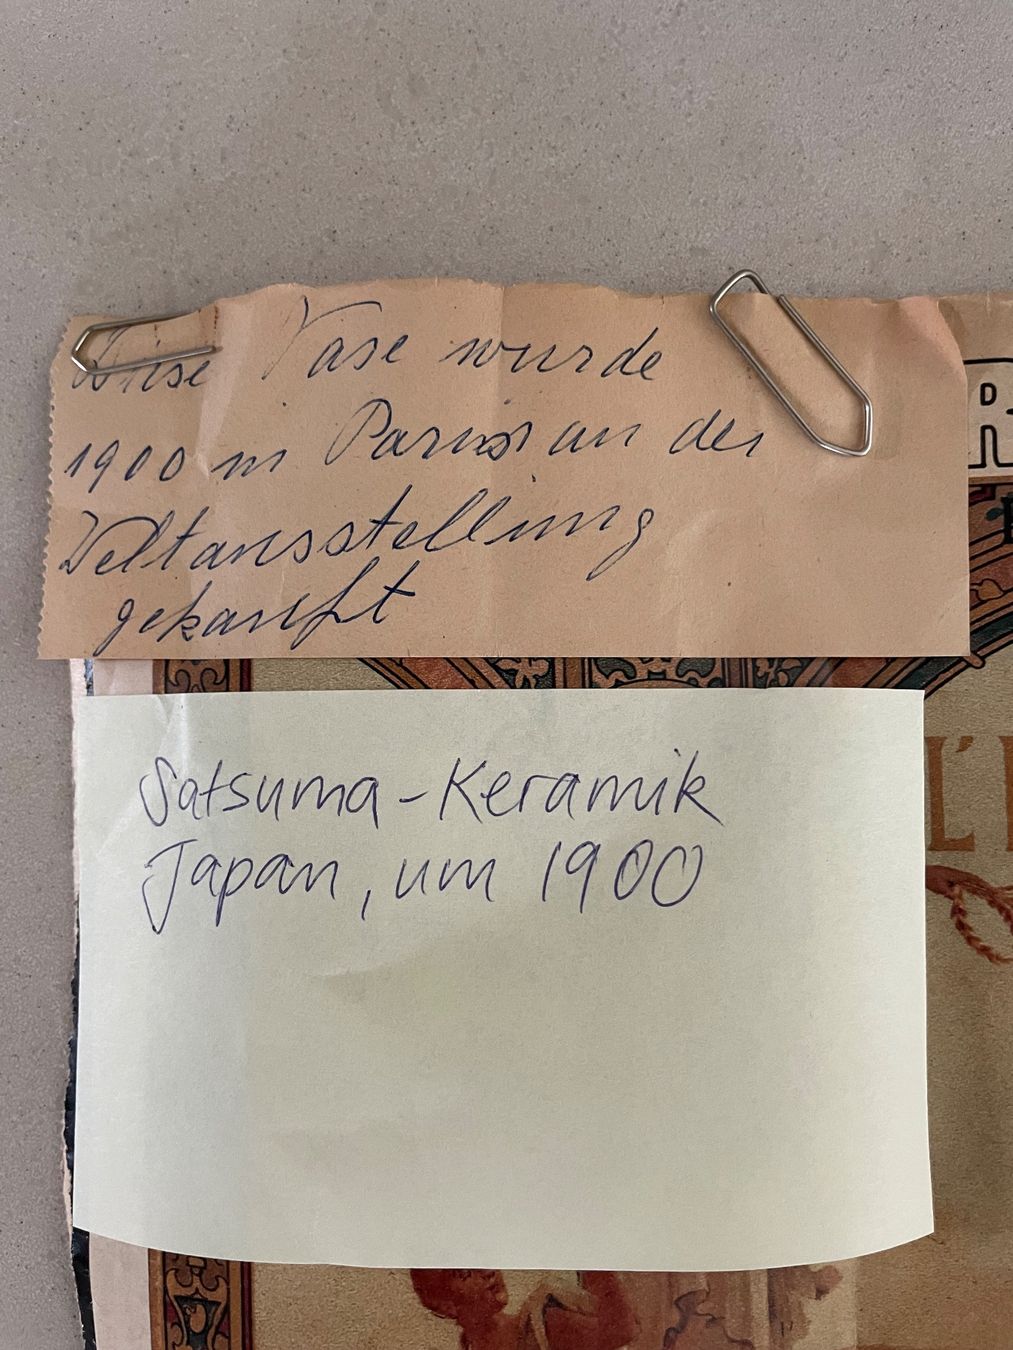 Diese Vase wurde
1900 in Paris an der
Weltausstellung
gekauft
R
Satsuma-Keramik
Japan, um 1900
L'